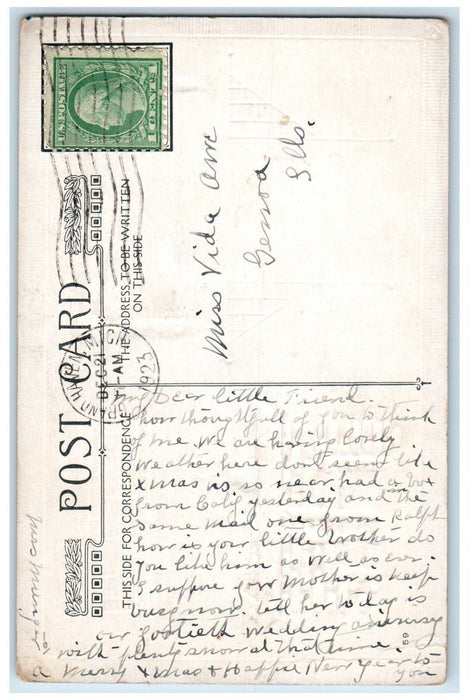 U.S. POSTAGE
1 CENT 1
GRAND HAVEN, MICH.
DEC 21
AM
1923
POST CARD
THE ADDRESS TO BE WRITTEN
ON THIS SIDE
THIS SIDE FOR CORRESPONDENCE
Miss Vida
Genoa
Ills.
My Dear little Friend.
how thoughtfull of you to think
of me. we are having lovely
weather here dont seem like
Xmas is so near, had a box
from Calif yesterday and the
same mail one from Ralph
how is your little brother do
you like him as well as ever.
I suppose your Mother is keep
busy now. tell her to day is
our fortieth wedding aniversry
with plenty snow at that time.
a Merry Xmas & Happie New year to
you
Mrs
69